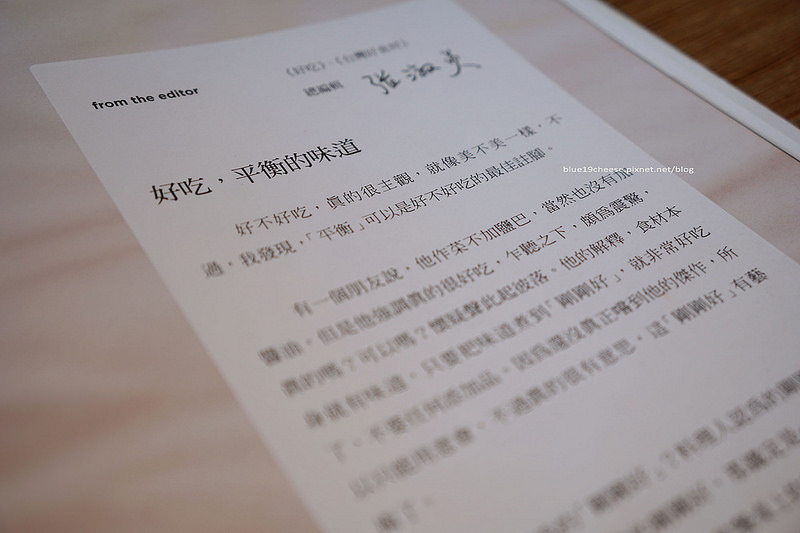 from the editor
《好吃》．《台灣好食材》
總編輯 張淑美
好吃，平衡的味道
好不好吃，真的很主觀，就像美不美一樣，不
過，我發現，「平衡」可以是好不好吃的最佳註腳。
有一個朋友說，他作菜不加鹽巴，當然也沒有加
醬油，但是他強調真的很好吃，乍聽之下，頗為震驚，
真的嗎？可以嗎？懷疑聲此起彼落。他的解釋，食材本
身就有味道，只要把味道煮到「剛剛好」，就非常好吃
了，不要任何添加品，因為還沒真正嚐到他的傑作，所
以只能用意會，不過真的很有意思，這「剛剛好」有藝
的「剛剛好」？料理人認為的剛剛
blue19cheese.pixnet.net/blog